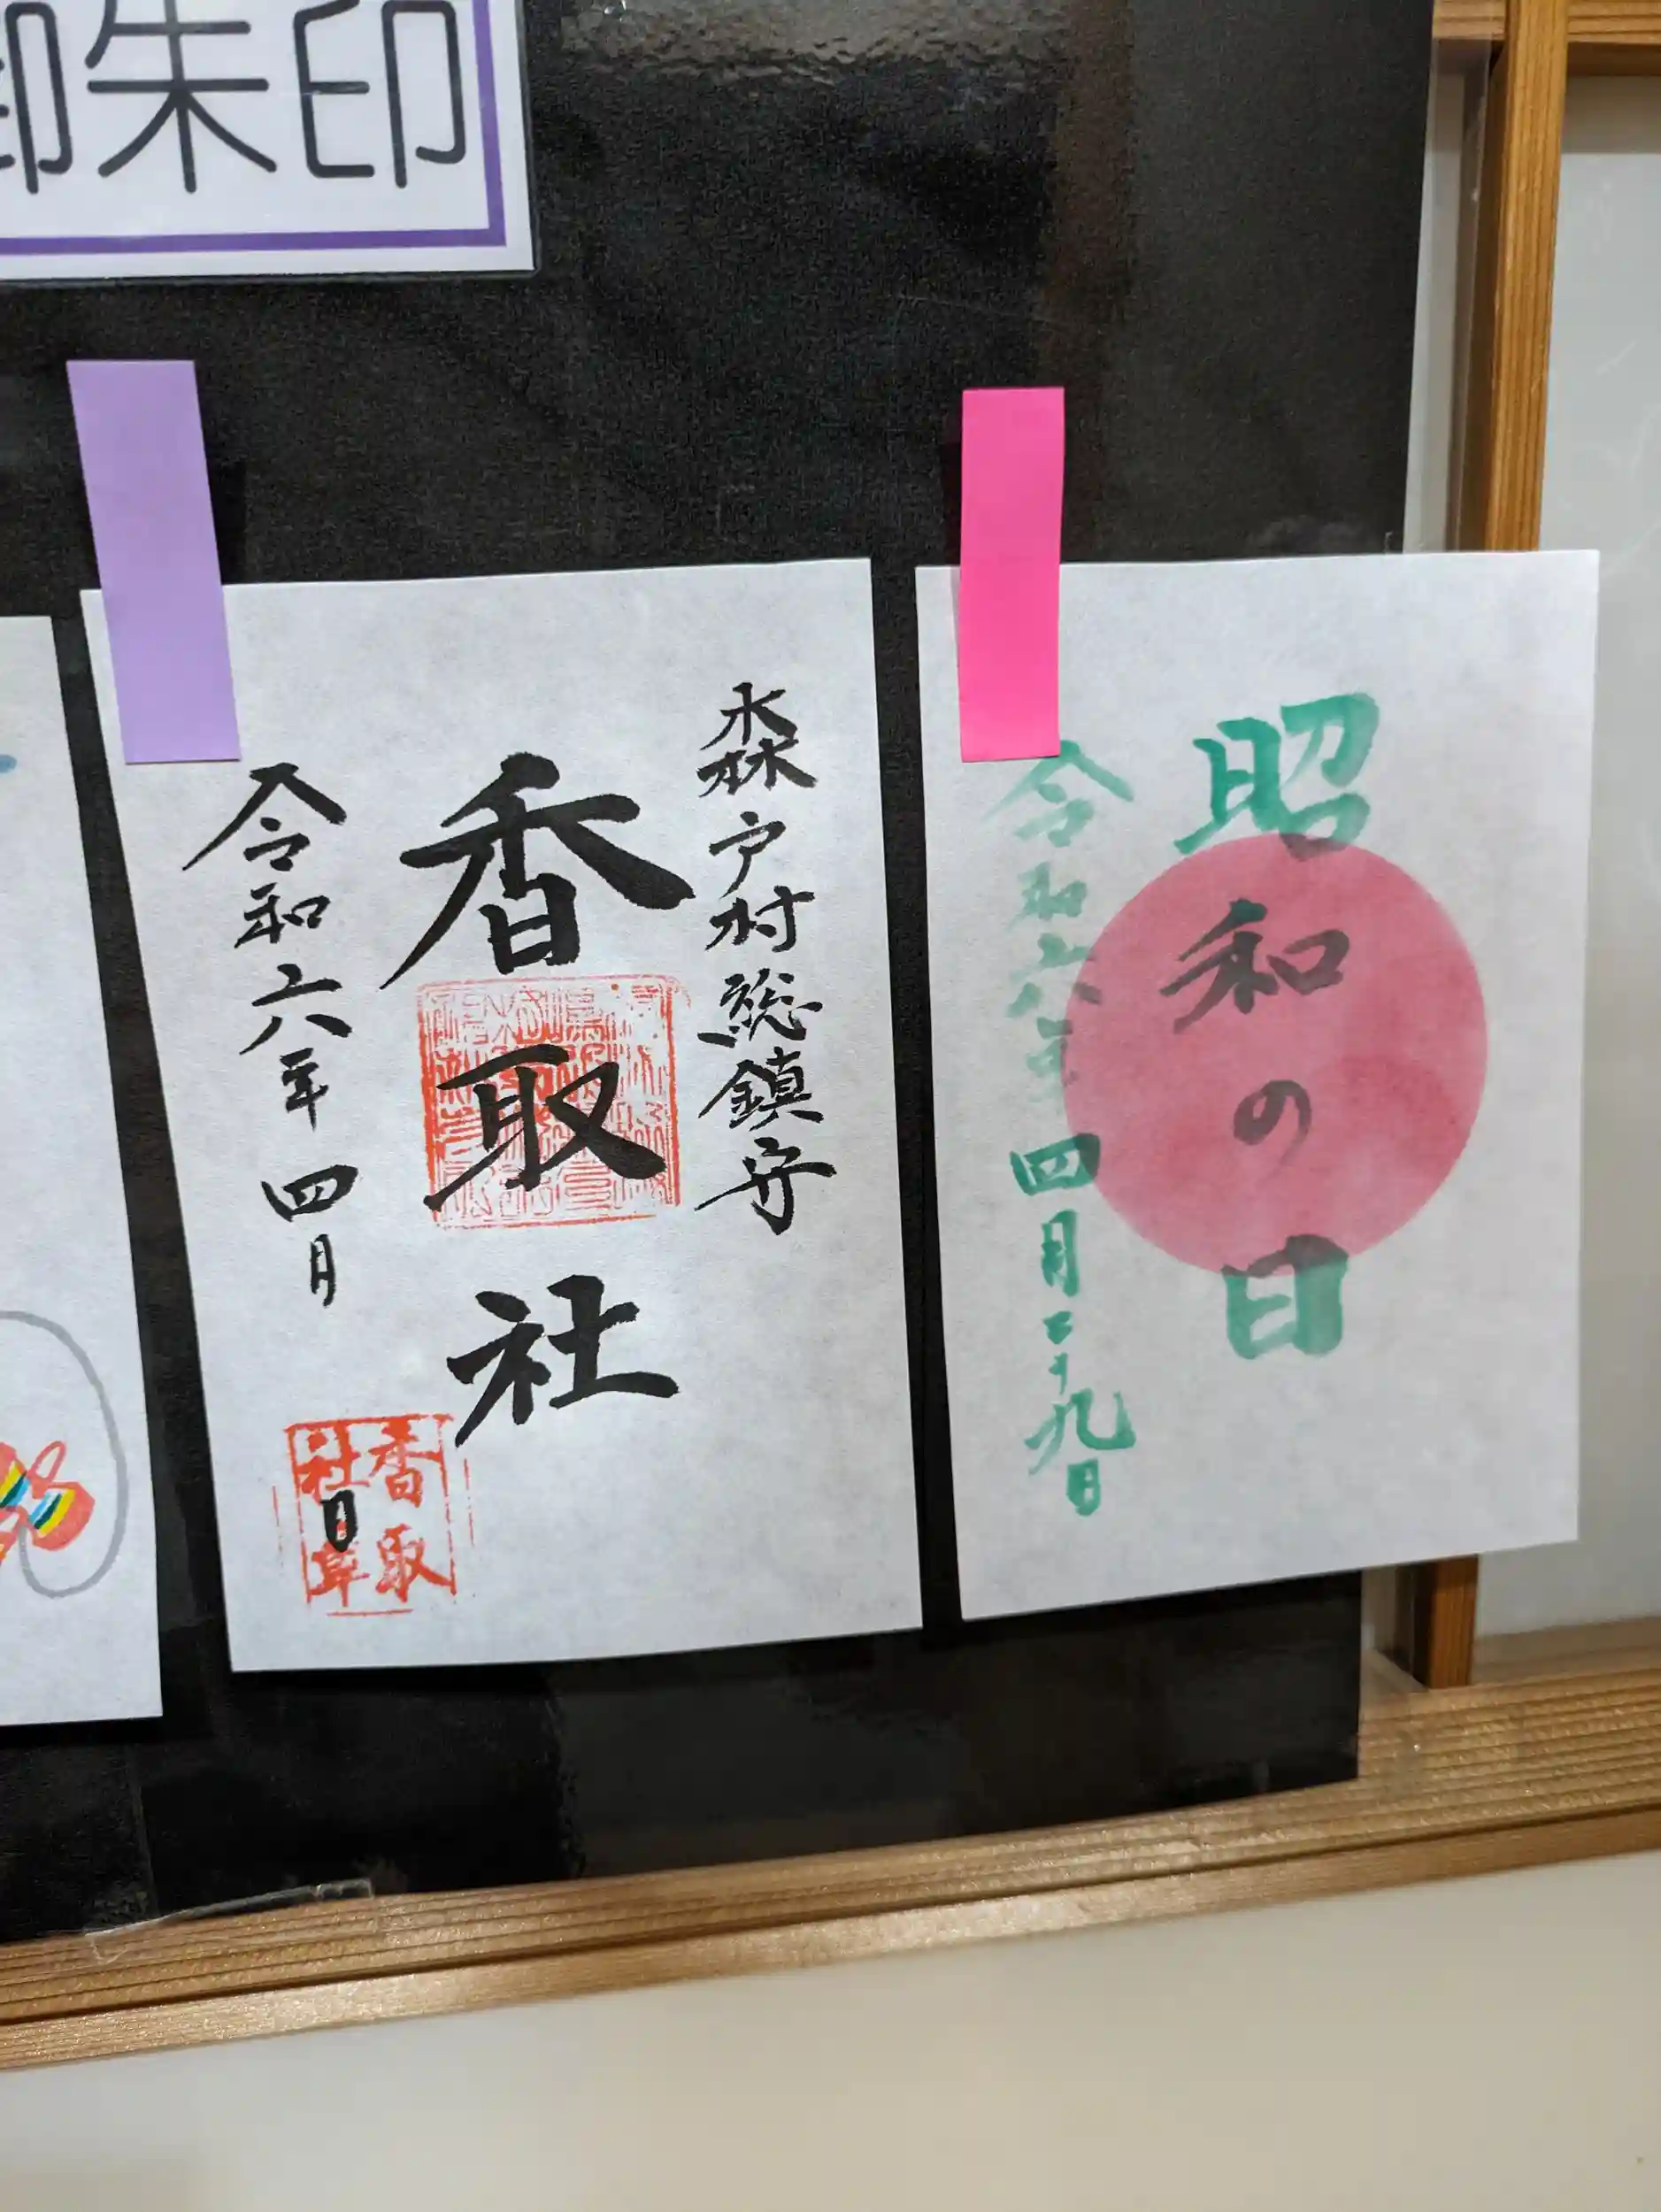 御朱印
森戸村総鎮守
香取社
令和六年四月 日
香取
社章
昭和の日
令和六年四月二十九日